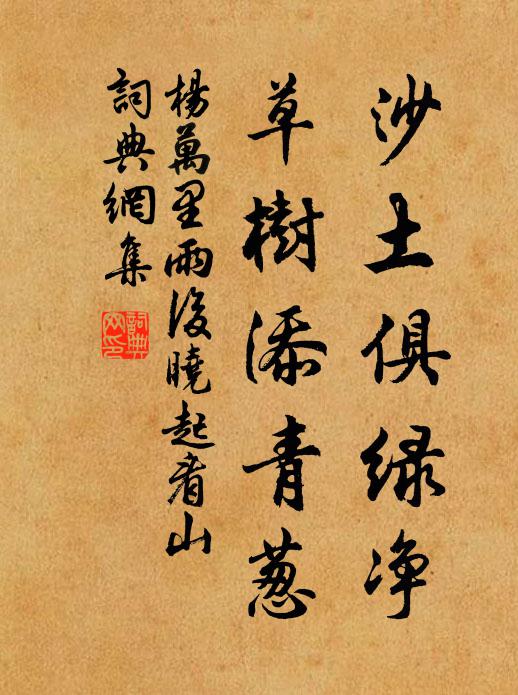 沙土俱绿净
草樹添青葱
楊萬里雨後曉起看山
詞典網集
詞典網印